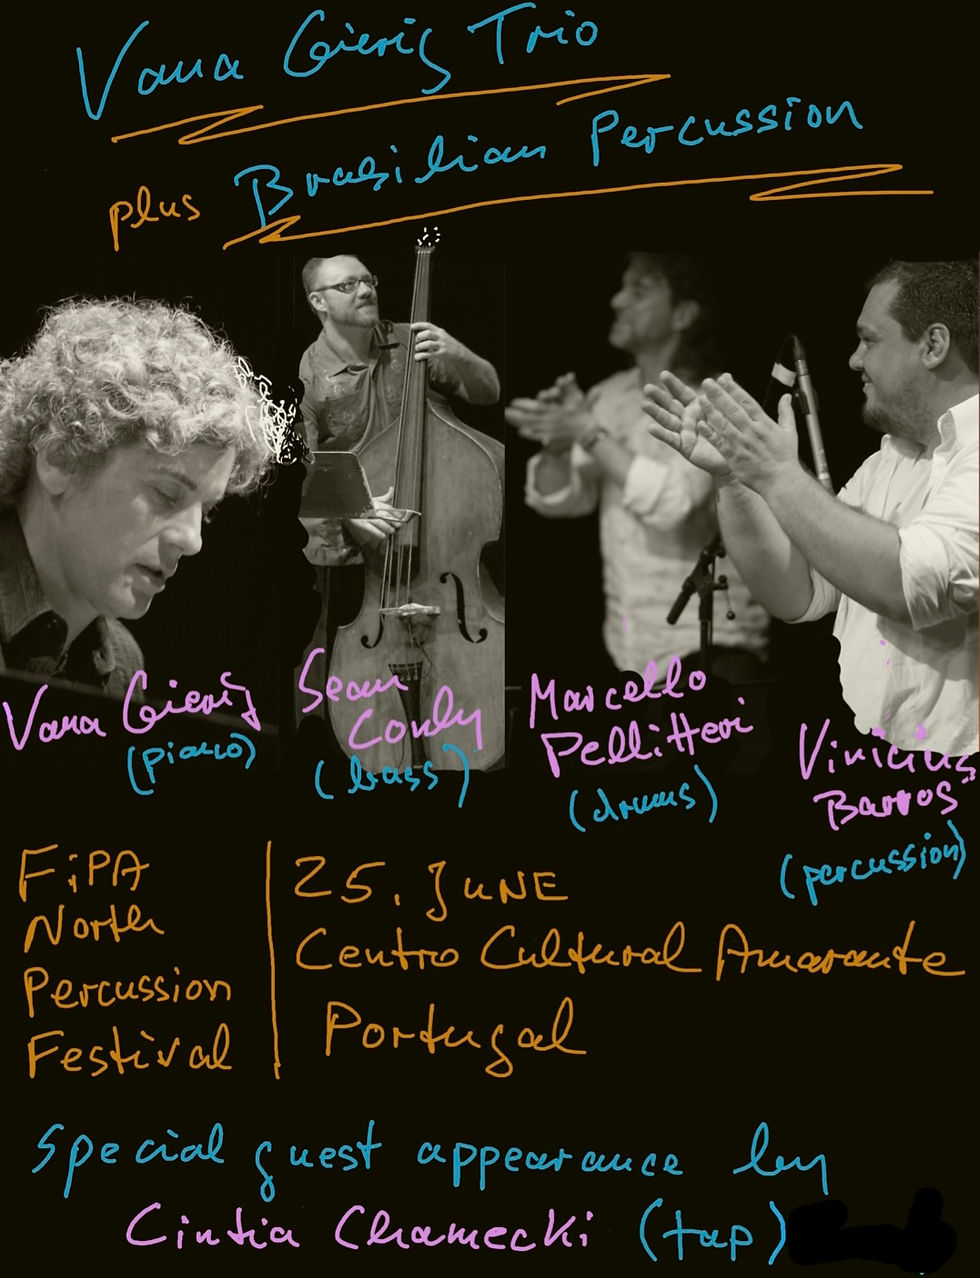 Vana Gierig Trio
plus Brasilian Percussion
Vana Gierig
(piano)
Sean
Conly
(bass)
Marcello
Pellitteri
(drums)
Vinicius
Barros
(percussion)
FiPA
North
Percussion
Festival
25. JuNE
Centro Cultural Amarante
Portugal
special guest appearance by
Cintia Chamecki (tap)